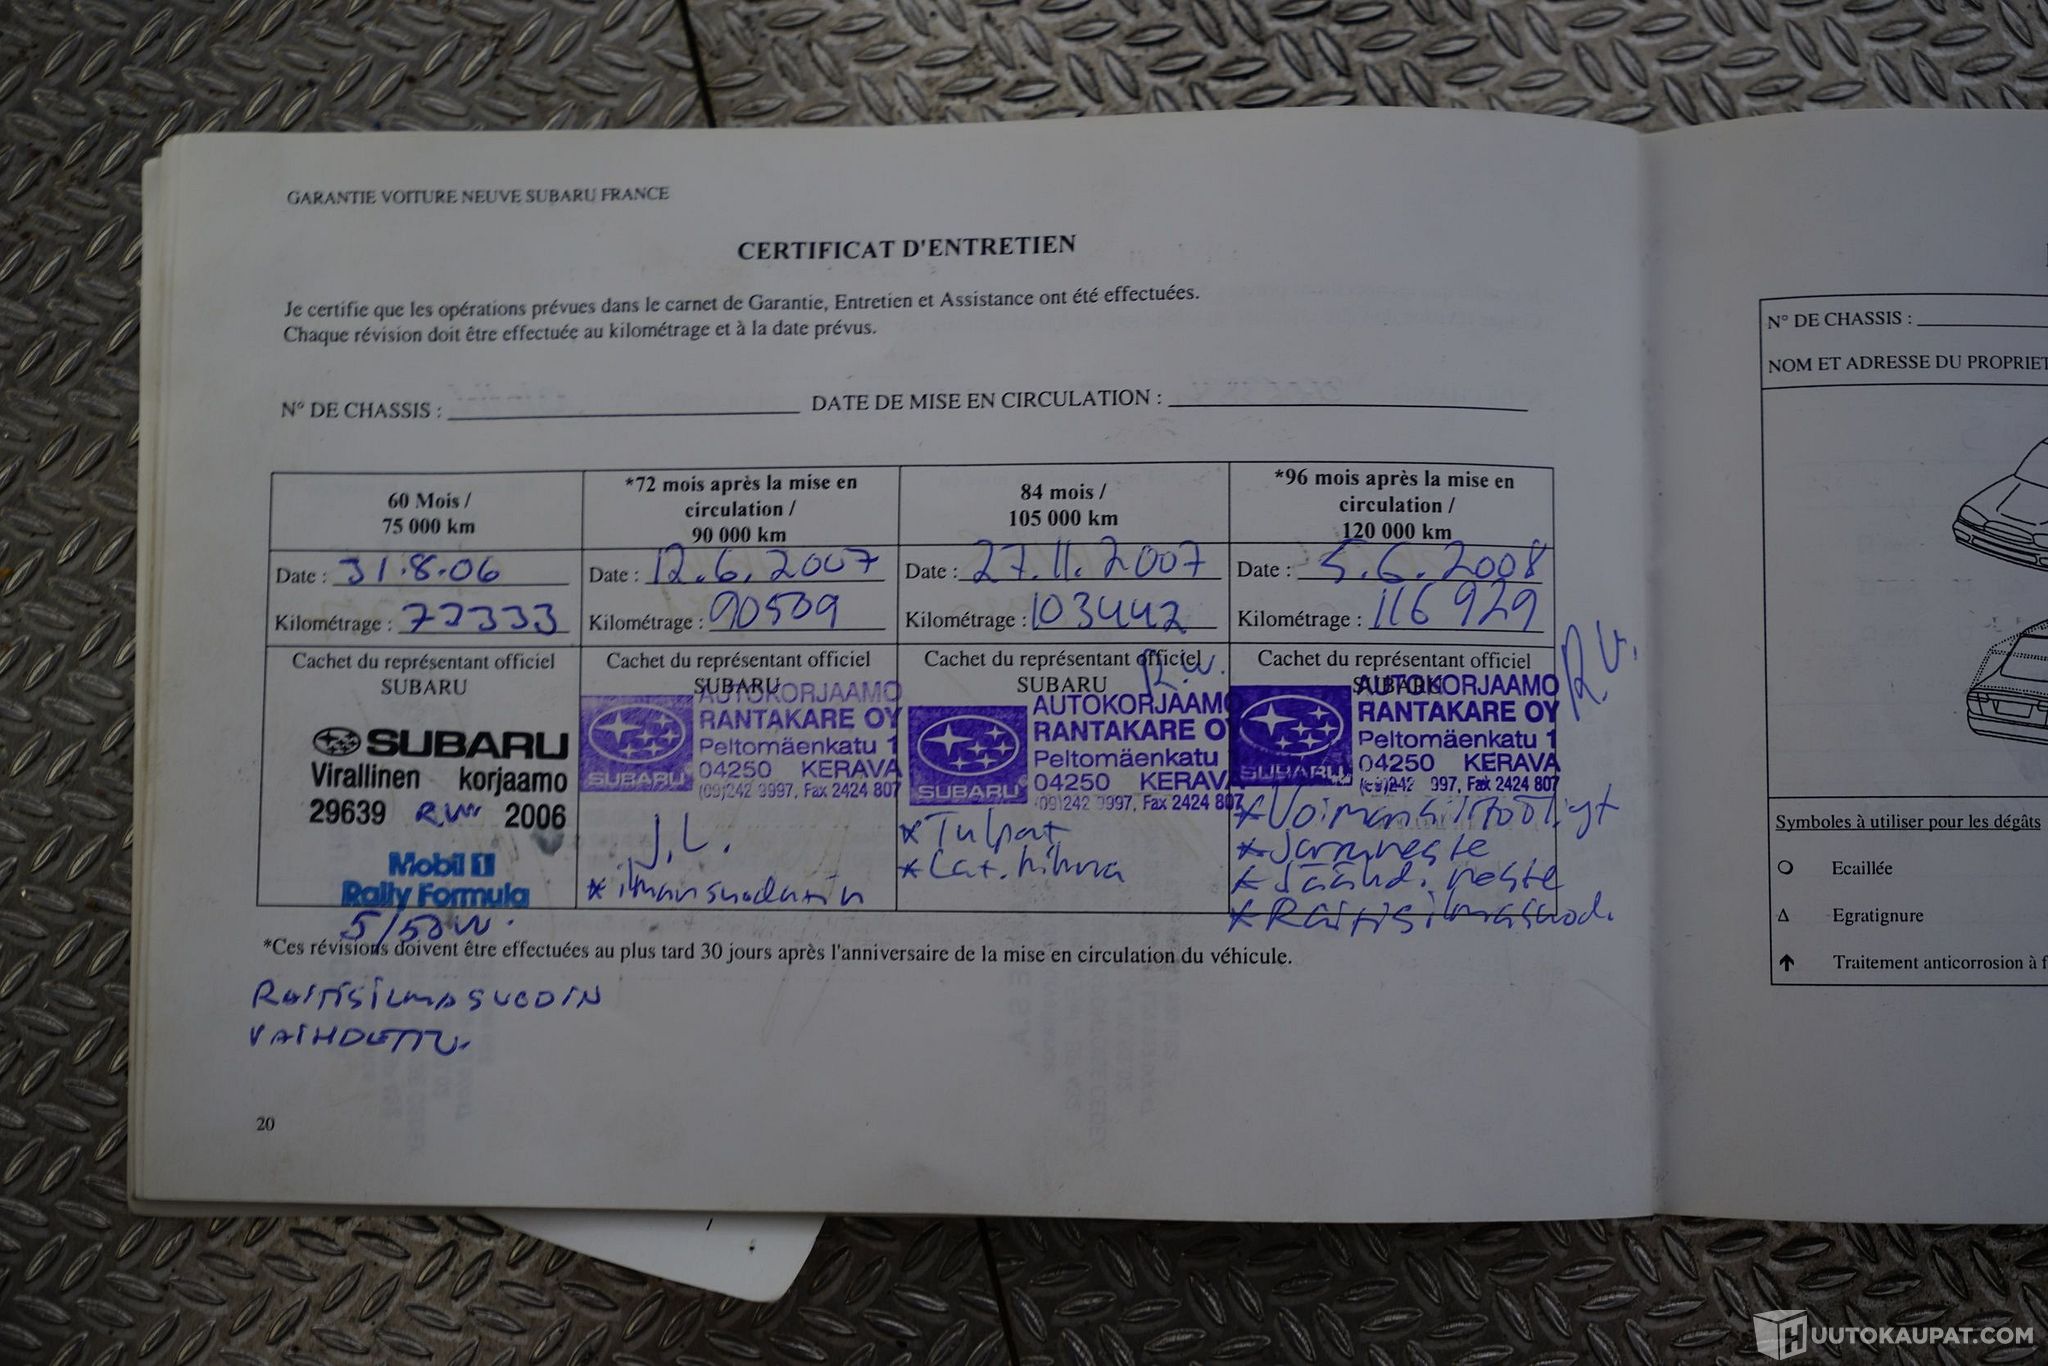 GARANTIE VOITURE NEUVE SUBARU FRANCE
CERTIFICAT D'ENTRETIEN
Je certifie que les opérations prévues dans le carnet de Garantie, Entretien et Assistance ont été effectuées.
Chaque révision doit être effectuée au kilométrage et à la date prévus.
N° DE CHASSIS :
DATE DE MISE EN CIRCULATION :
60 Mois /
75 000 km
Date : 31.8.06
Kilométrage :
Cachet du représentant officiel
SUBARU
SUBARU
Virallinen korjaamo
29639 R.W 2006
Mobil 1
Rally Formula
5/50W.
RAITISILMASUODIN
VAIHDETTU.
*72 mois après la mise en
circulation /
90 000 km
Date : 12.6.2007
Kilométrage : 90509
Cachet du représentant officiel
SUBARU
SUBARU
AUTOKORJAAMO
RANTAKARE OY
Peltomäenkatu 1
04250 KERAVA
(09)242 9997, Fax 2424 807
J.L.
* ilmansuodatin
84 mois /
105 000 km
Date : 27.11.2007
Kilométrage : 103442
Cachet du représentant officiel
SUBARU
R.W.
SUBARU
AUTOKORJAAMO
RANTAKARE OY
Peltomäenkatu
04250 KERAVA
(09)242 9997, Fax 2424 807
* Tulpat
* Lat. hihna
*96 mois après la mise en
circulation /
120 000 km
Date : 5.6.2008
Kilométrage : 116929
Cachet du représentant officiel
SUBARU
R.W.
SUBARU
AUTOKORJAAMO
RANTAKARE OY
Peltomäenkatu 1
04250 KERAVA
(09)242 9997, Fax 2424 807
* Voimansiirtoöljyt
* Jarruneste
* Jäähd. neste
* Raitisilmasuod.
*Ces révisions doivent être effectuées au plus tard 30 jours après l'anniversaire de la mise en circulation du véhicule.
20
N° DE CHASSIS :
NOM ET ADRESSE DU PROPRIET
Symboles à utiliser pour les dégâts
Ecaillée
Δ Egratignure
Traitement anticorrosion à f
HUUTOKAUPAT.COM